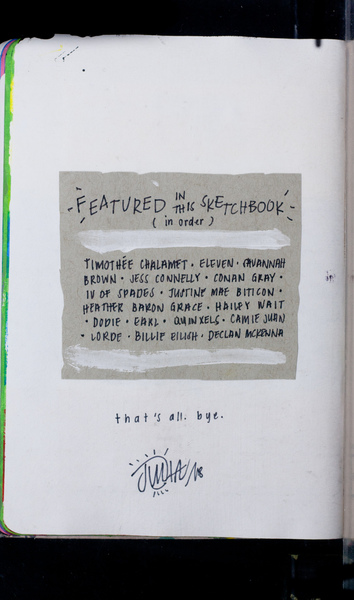 FEATURED IN THIS SKETCHBOOK
(in order)
TIMOTHÉE CHALAMET · ELEVEN · SAVANNAH
BROWN · JESS CONNELLY · CONAN GRAY ·
IV OF SPADES · JUSTINE MAE BITICON ·
HEATHER BARON GRACE · HAILEY WAIT
· DODIE · EARL · QUINXELS · CAMIE JUAN
· LORDE · BILLIE EILISH · DECLAN MCKENNA
that's all. bye.
JULIA/18